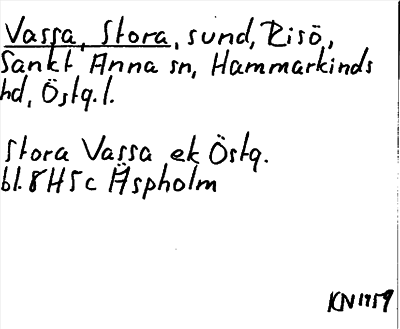 Vassa, Stora, sund, Risö,
Sankt Anna sn, Hammarkinds
hd, Östg.l.
Stora Vassa ek Östg.
bl. 8H5c Äspholm
KN 1959